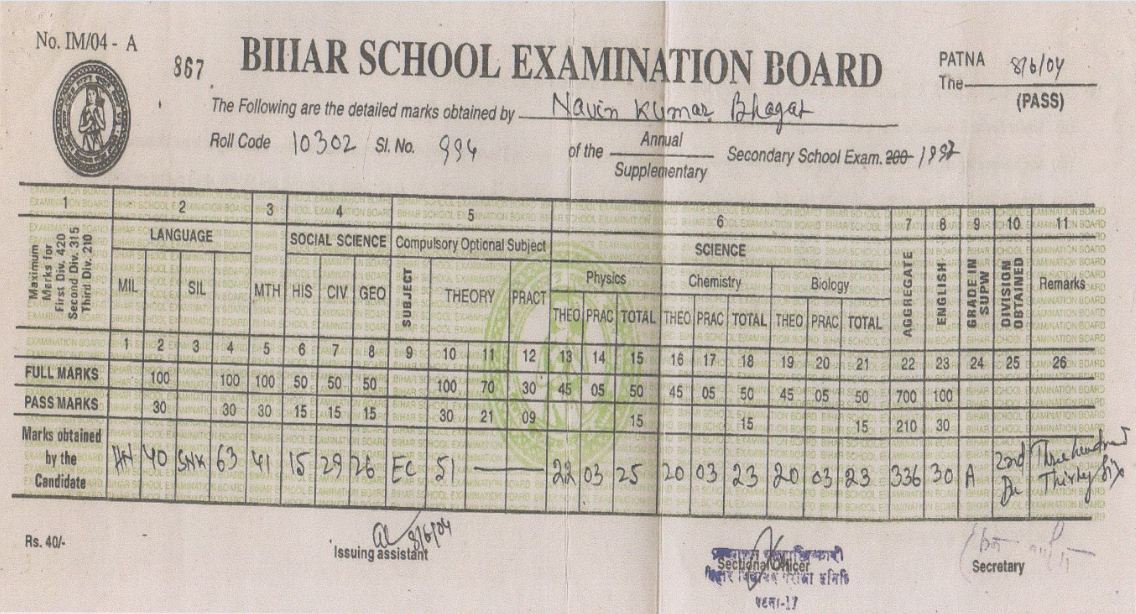 No. IM/04 - A
867
BIHAR SCHOOL EXAMINATION BOARD
PATNA 8/6/04
The
(PASS)
The Following are the detailed marks obtained by Navin Kumar Bhagat
Roll Code 10302 Sl. No. 994 of the Annual Supplementary Secondary School Exam. 200 1992
1 2 3 4 5 6 7 8 9 10 11
Maximum Marks for First Div. 420 Second Div. 315 Third Div. 210
LANGUAGE SOCIAL SCIENCE Compulsory Optional Subject SCIENCE AGGREGATE ENGLISH GRADE IN SUPW DIVISION OBTAINED Remarks
Physics Chemistry Biology
MIL SIL MTH HiS CIV GEO SUBJECT THEORY PRACT THEO PRAC TOTAL THEO PRAC TOTAL THEO PRAC TOTAL
1 2 3 4 5 6 7 8 9 10 11 12 13 14 15 16 17 18 19 20 21 22 23 24 25 26
FULL MARKS 100 100 100 50 50 50 100 70 30 45 05 50 45 05 50 45 05 50 700 100
PASS MARKS 30 30 30 15 15 15 30 21 09 15 15 15 210 30
Marks obtained by the Candidate HN 40 SNK 63 41 15 29 26 EC 51 — 22 03 25 20 03 23 20 03 23 336 30 A 2nd Div Three hundred Thirty Six
Rs. 40/-
8/6/04
Issuing assistant
Sectional Officer
पटना-17
Secretary